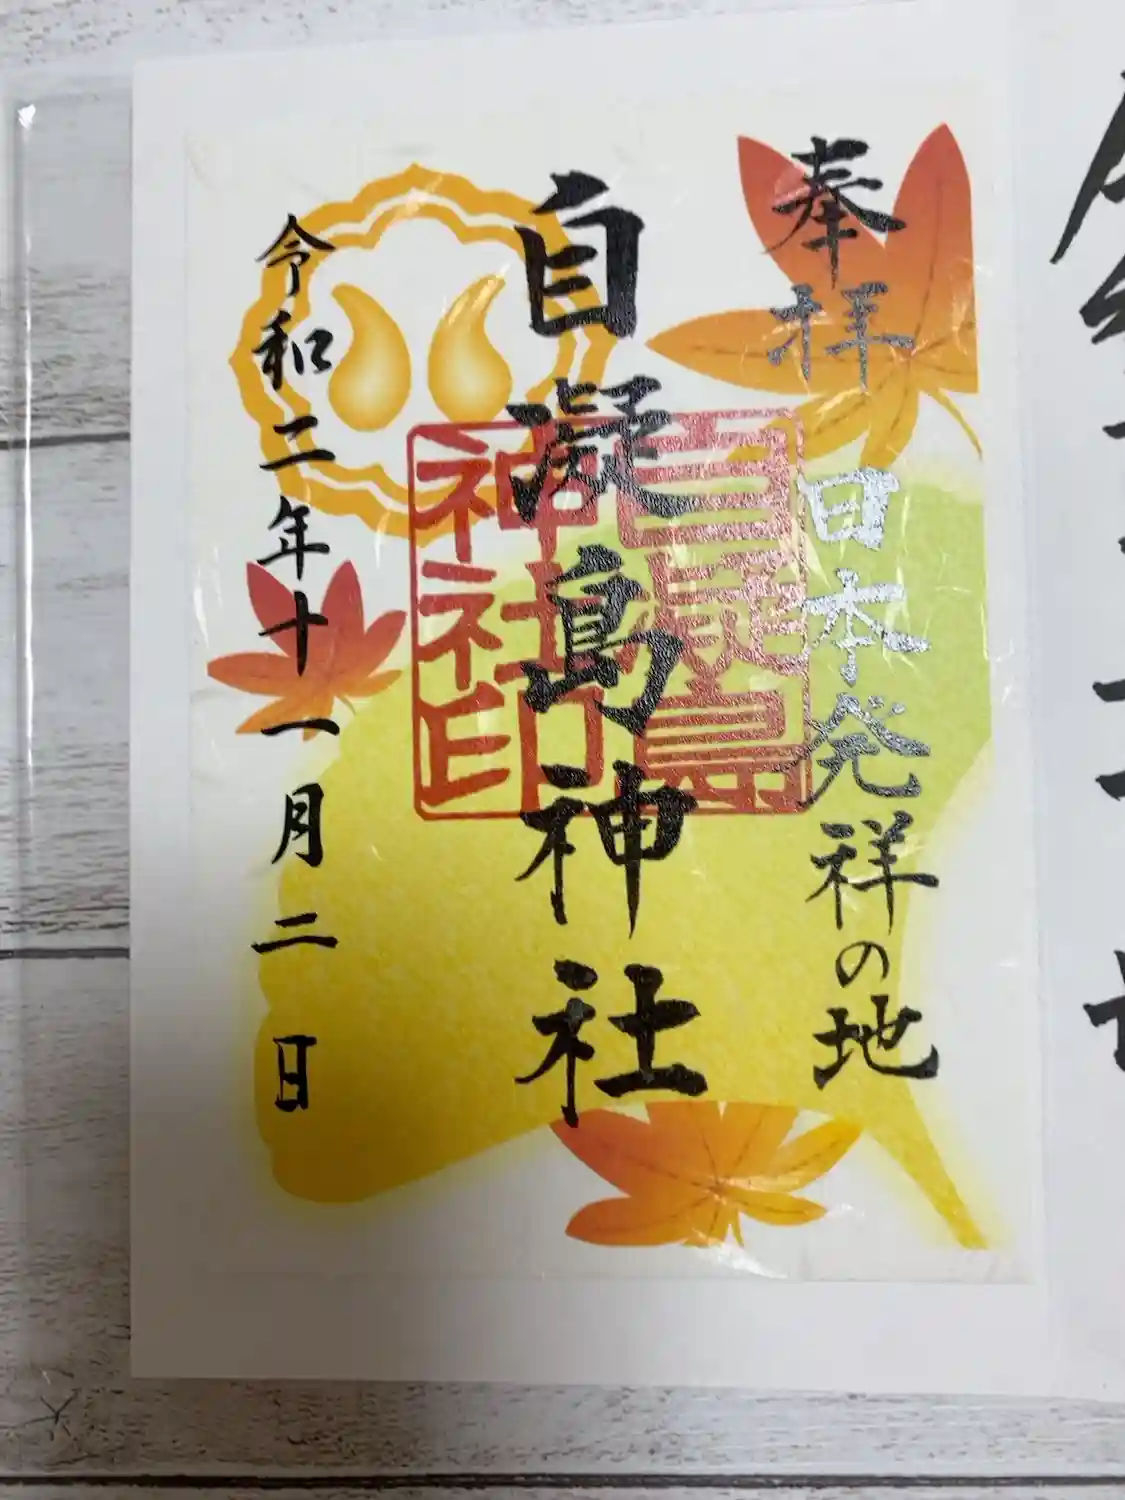 奉拝
日本発祥の地
自凝島神社
自凝島
神社印
令和二年十一月二日